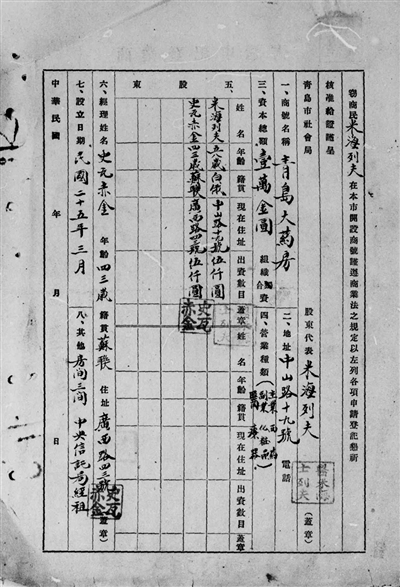 竊商民米海列夫在本市開設商號謹遵商業法之規定以左列各項申請登記懇祈
核准給證謹呈
青島市社會局
股東代表 米海列夫 (蓋章)
一、商號名稱 青島大葯房
二、地址 中山路十九號 電話
三、資本總額 壹萬金圓 組織 獨合資
四、營業種類
五、股東
姓名 年齡 籍貫 現在住址 出資數目 蓋章
姓名 年齡 籍貫 現在住址 出資數目 蓋章
米海列夫 五八歲 白俄 中山路十九號 伍仟圓
史瓦赤金 四三歲 蘇聯 廣西路四三號 伍仟圓
史瓦赤金
六、經理姓名 史瓦赤金 年齡 四三歲 籍貫 蘇聯 住址 廣西路四三號 (蓋章)
史瓦赤金
七、設立日期 民國二十五年三月
八、其他 房間三間 中央信託局經租
中華民國 年 月 日